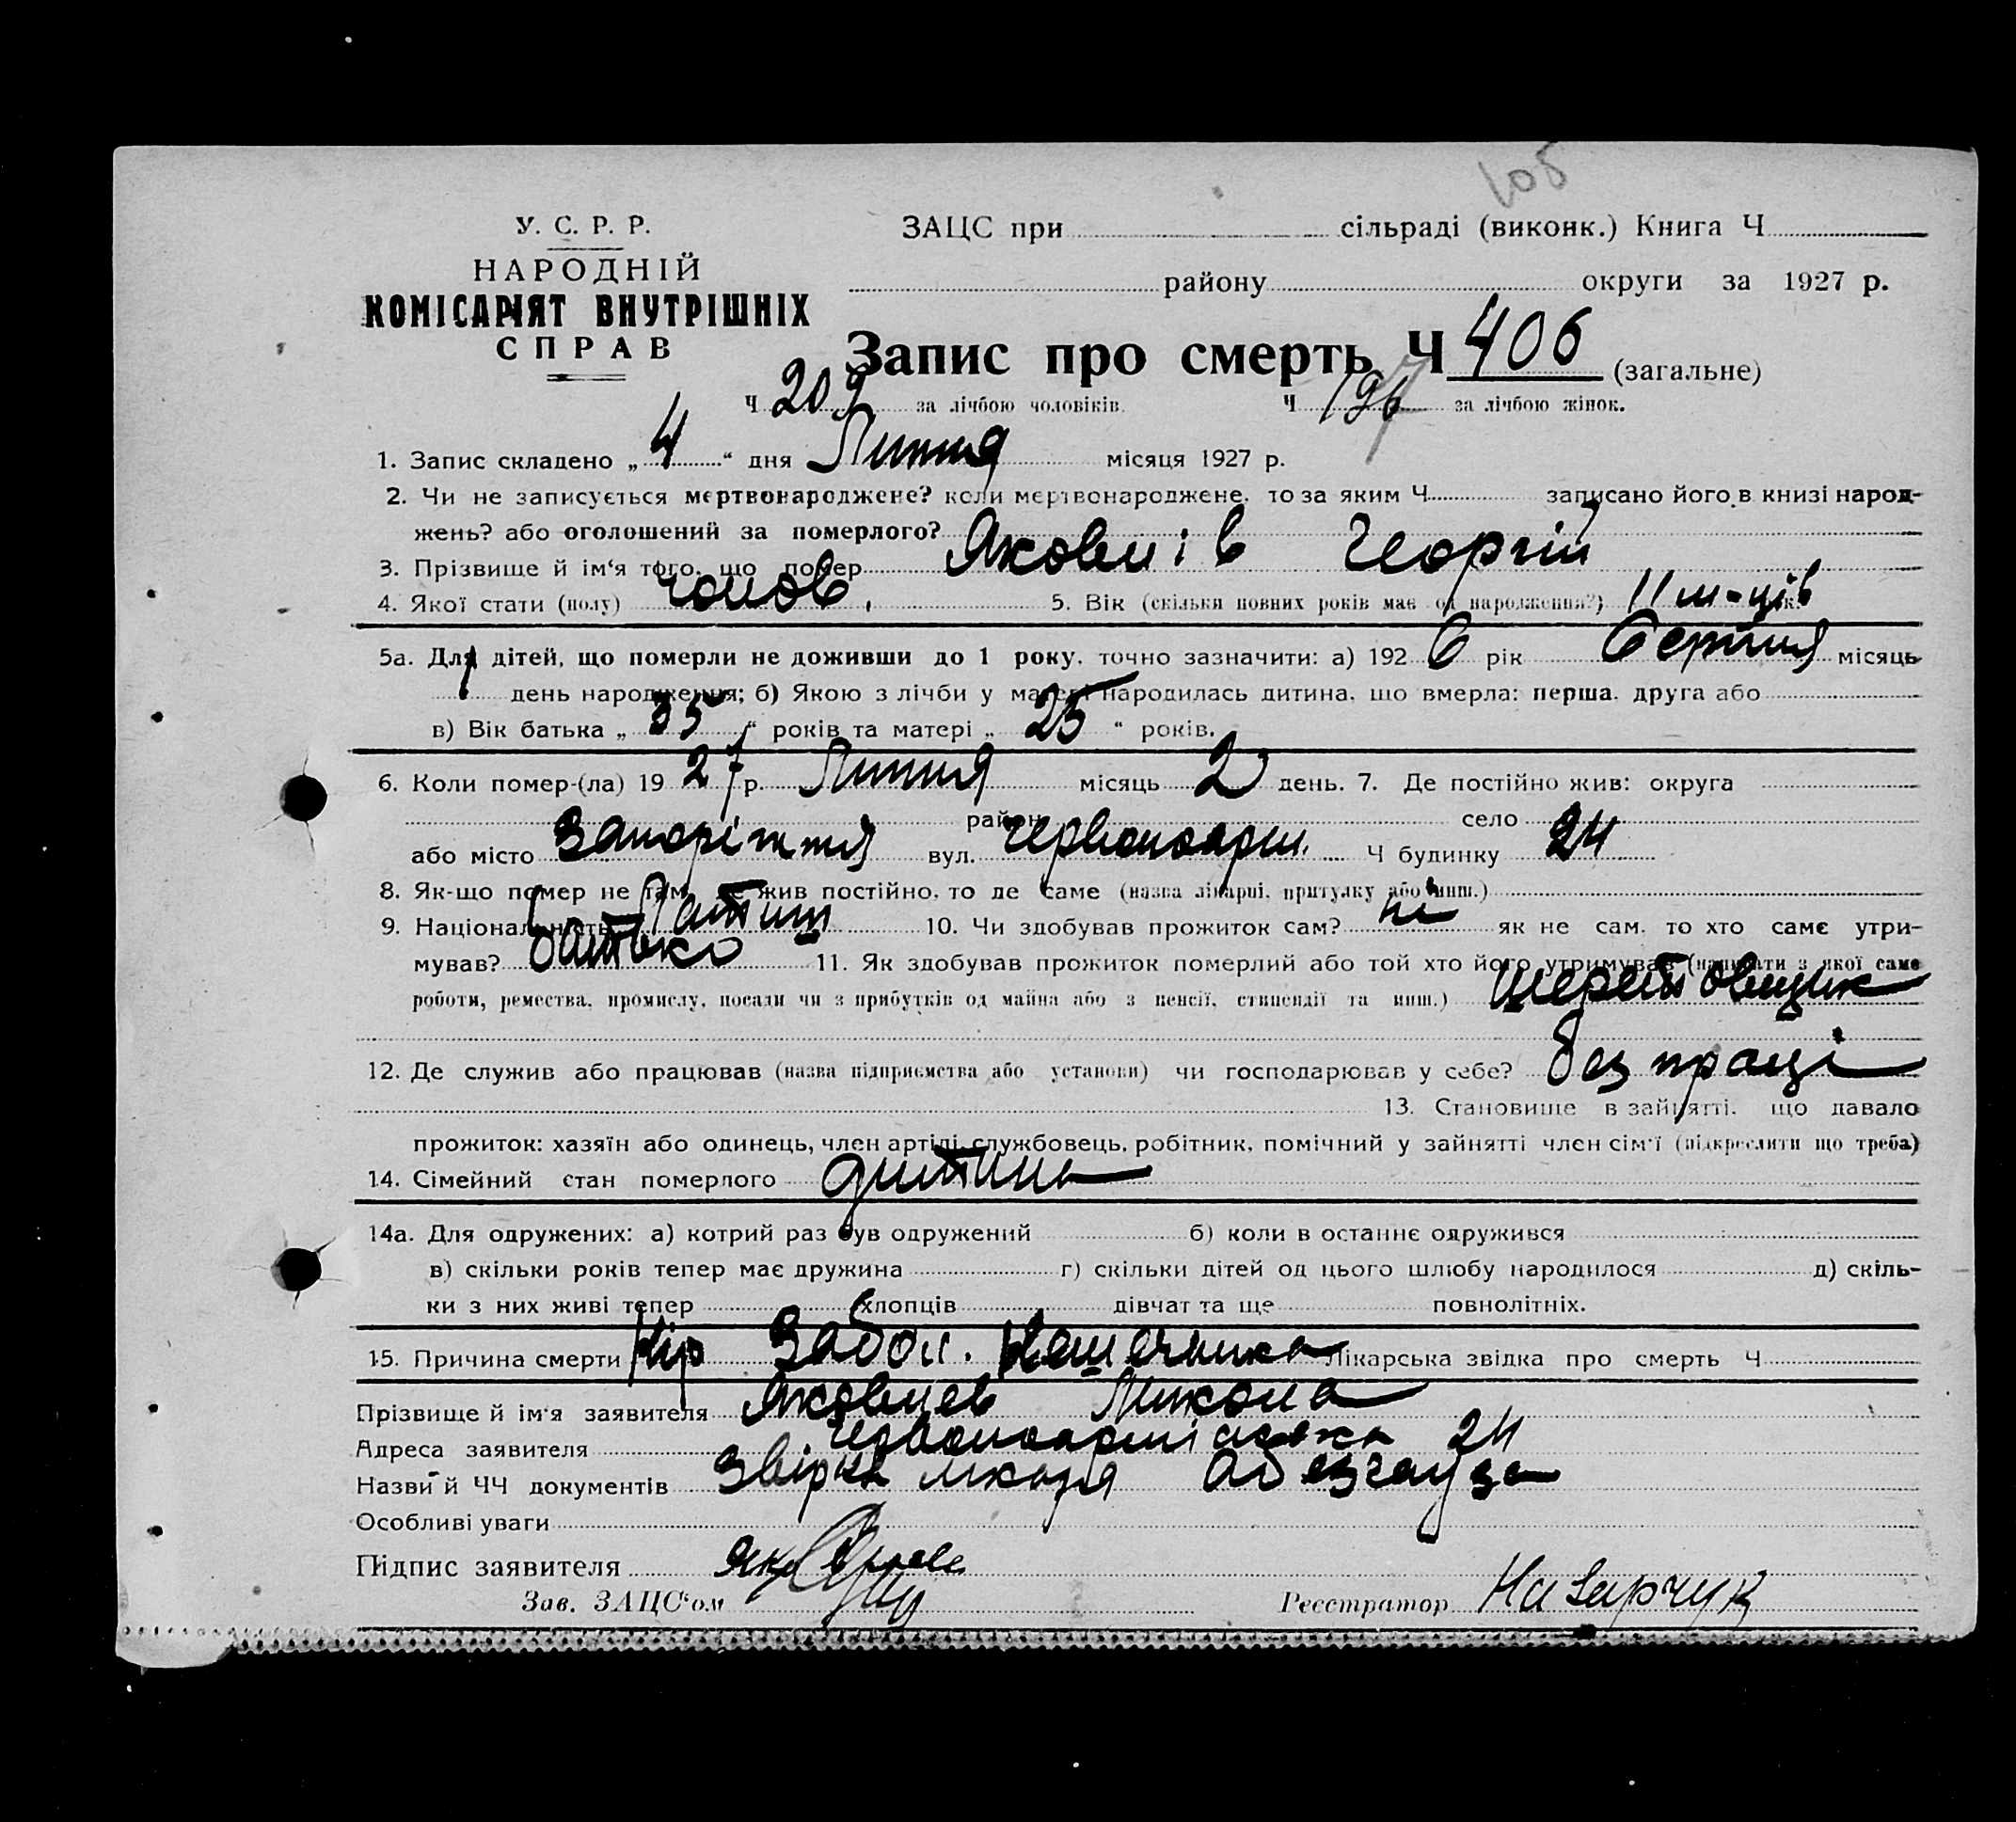 105
У. С. Р. Р.
НАРОДНІЙ
КОМІСАРІЯТ ВНУТРІШНІХ
СПРАВ
ЗАЦС при сільраді (виконк.) Книга Ч
району округи за 1927 р.
Запис про смерть Ч 406 (загальне)
Ч 209 за лічбою чоловіків. Ч 196 за лічбою жінок.
1. Запис складено „ 4 “ дня Липня місяця 1927 р.
2. Чи не записується мертвонароджене? коли мертвонароджене, то за яким Ч записано його в книзі народ-
жень? або оголошений за померлого?
3. Прізвище й ім‘я того, що помер Яковлів Георгій
4. Якої стати (полу) чолов. 5. Вік (скільки повних років має од народження?) 11 м-ців
5а. Для дітей, що померли не доживши до 1 року, точно зазначити: а) 192 6 рік Серпня місяць
1 день народження; б) Якою з лічби у матері народилась дитина, що вмерла: перша, друга або
в) Вік батька „ 35 “ років та матері „ 25 “ років.
6. Коли помер-(ла) 19 27 р. Липня місяць 2 день. 7. Де постійно жив: округа
район село
або місто Запоріжжя вул. Червоноарм. Ч будинку 24
8. Як-що помер не там, де жив постійно, то де саме (назва лікарні, притулку або инш.)
9. Національність Латиш 10. Чи здобував прожиток сам? ні як не сам, то хто саме утри-
мував? батько 11. Як здобував прожиток померлий або той хто його утримував (написати з якої саме
роботи, ремества, промислу, посади чи з прибутків од майна або з пенсії, стипендії та инш.)
12. Де служив або працював (назва підприємства або установи) чи господарював у себе? без праці
13. Становище в зайнятті, що давало
прожиток: хазяїн або одинець, член артілі, службовець, робітник, помічний у зайнятті член сім‘ї (підкреслити що треба)
14. Сімейний стан померлого дитина
14а. Для одружених: а) котрий раз був одружений б) коли в останнє одружився
в) скільки років тепер має дружина г) скільки дітей од цього шлюбу народилося д) скіль-
ки з них живі тепер хлопців дівчат та ще повнолітніх.
15. Причина смерти Кір Забол. Кешечника Лікарська звідка про смерть Ч
Прізвище й ім‘я заявителя Яковлев Микола
Адреса заявителя Червоноармійська 24
Назви й ЧЧ документів лікаря
Особливі уваги
Підпис заявителя
Зав. ЗАЦС‘ом Реєстратор Назарчук